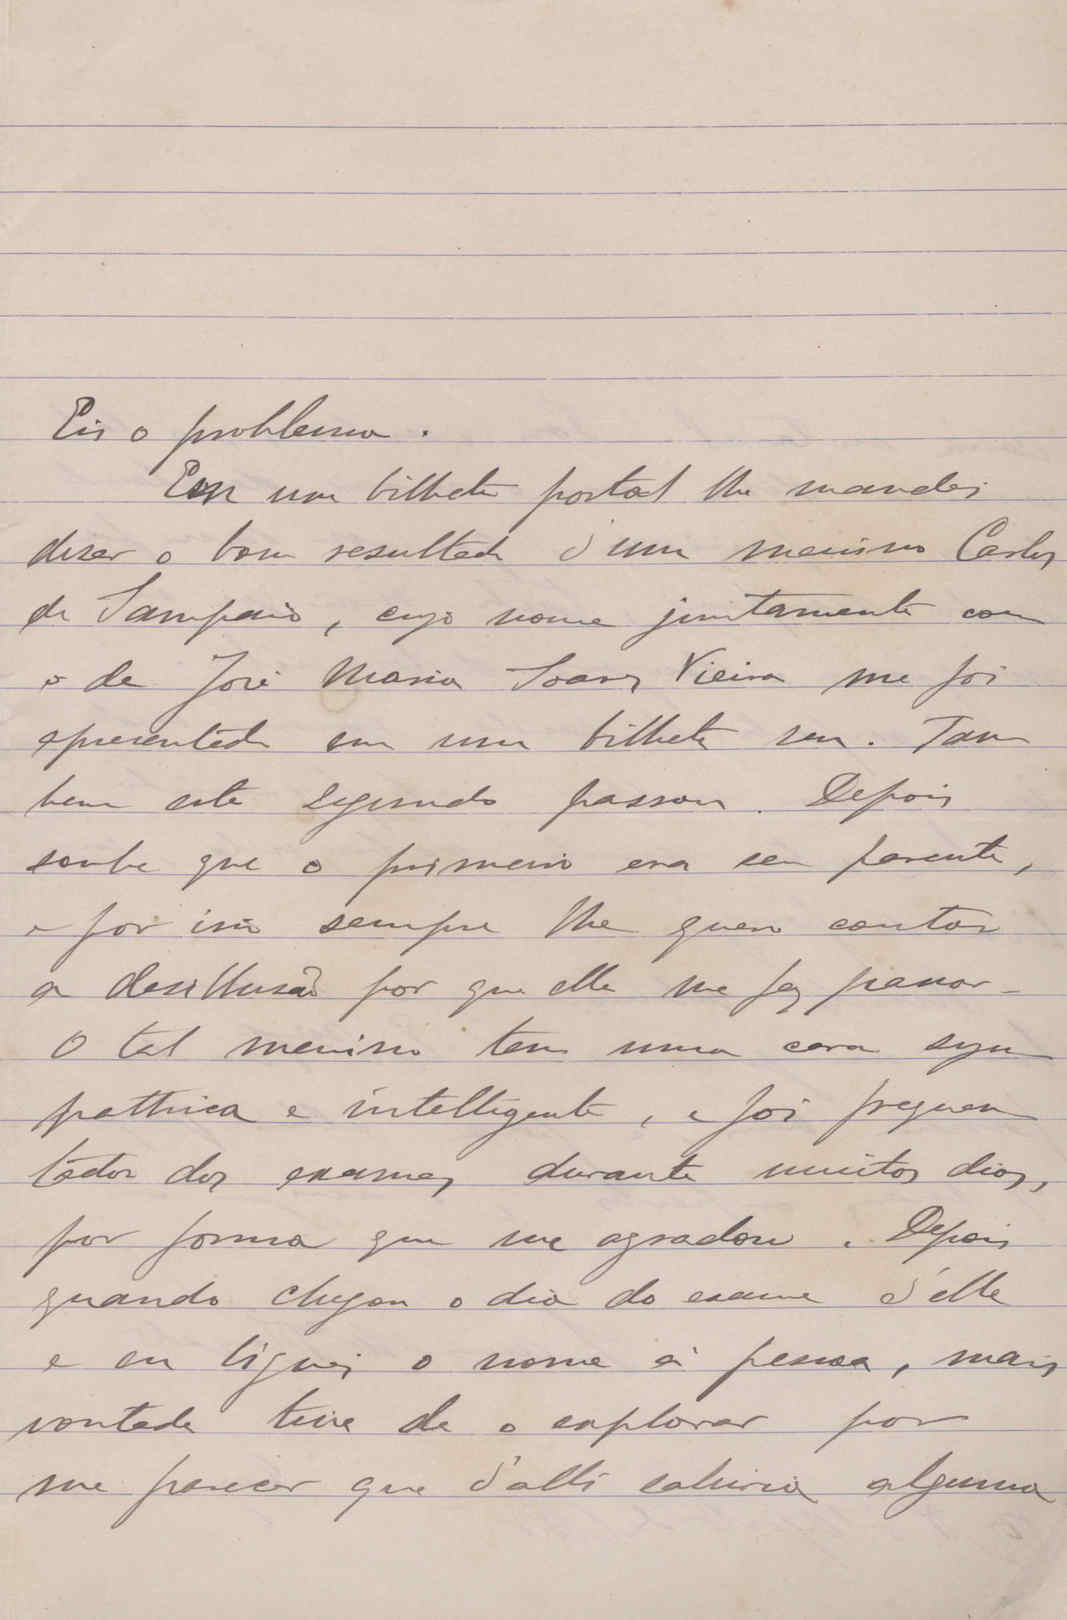 Eis o problema.
Em um bilhete postal lhe mandei
diser o bom resultado d'um menino Carlos
de Sampaio, cujo nome juntamente com
o de José Maria Soares Vieira me foi
apresentado em um bilhete seu. Tam
bem este segundo passou. Depois
soube que o primeiro era seu parente,
e por isso sempre lhe quero contar
a desillusão por que elle me fez passar-
O tal menino tem uma cara sym
pathica e intelligente, e foi frequen
tador dos exames durante muitos dias,
por forma que me agradou. Depois
quando chegou o dia do exame d'elle
e eu liguei o nome á pessoa, mais
vontade tive de o explorar por
me parecer que d'alli sahiria alguma